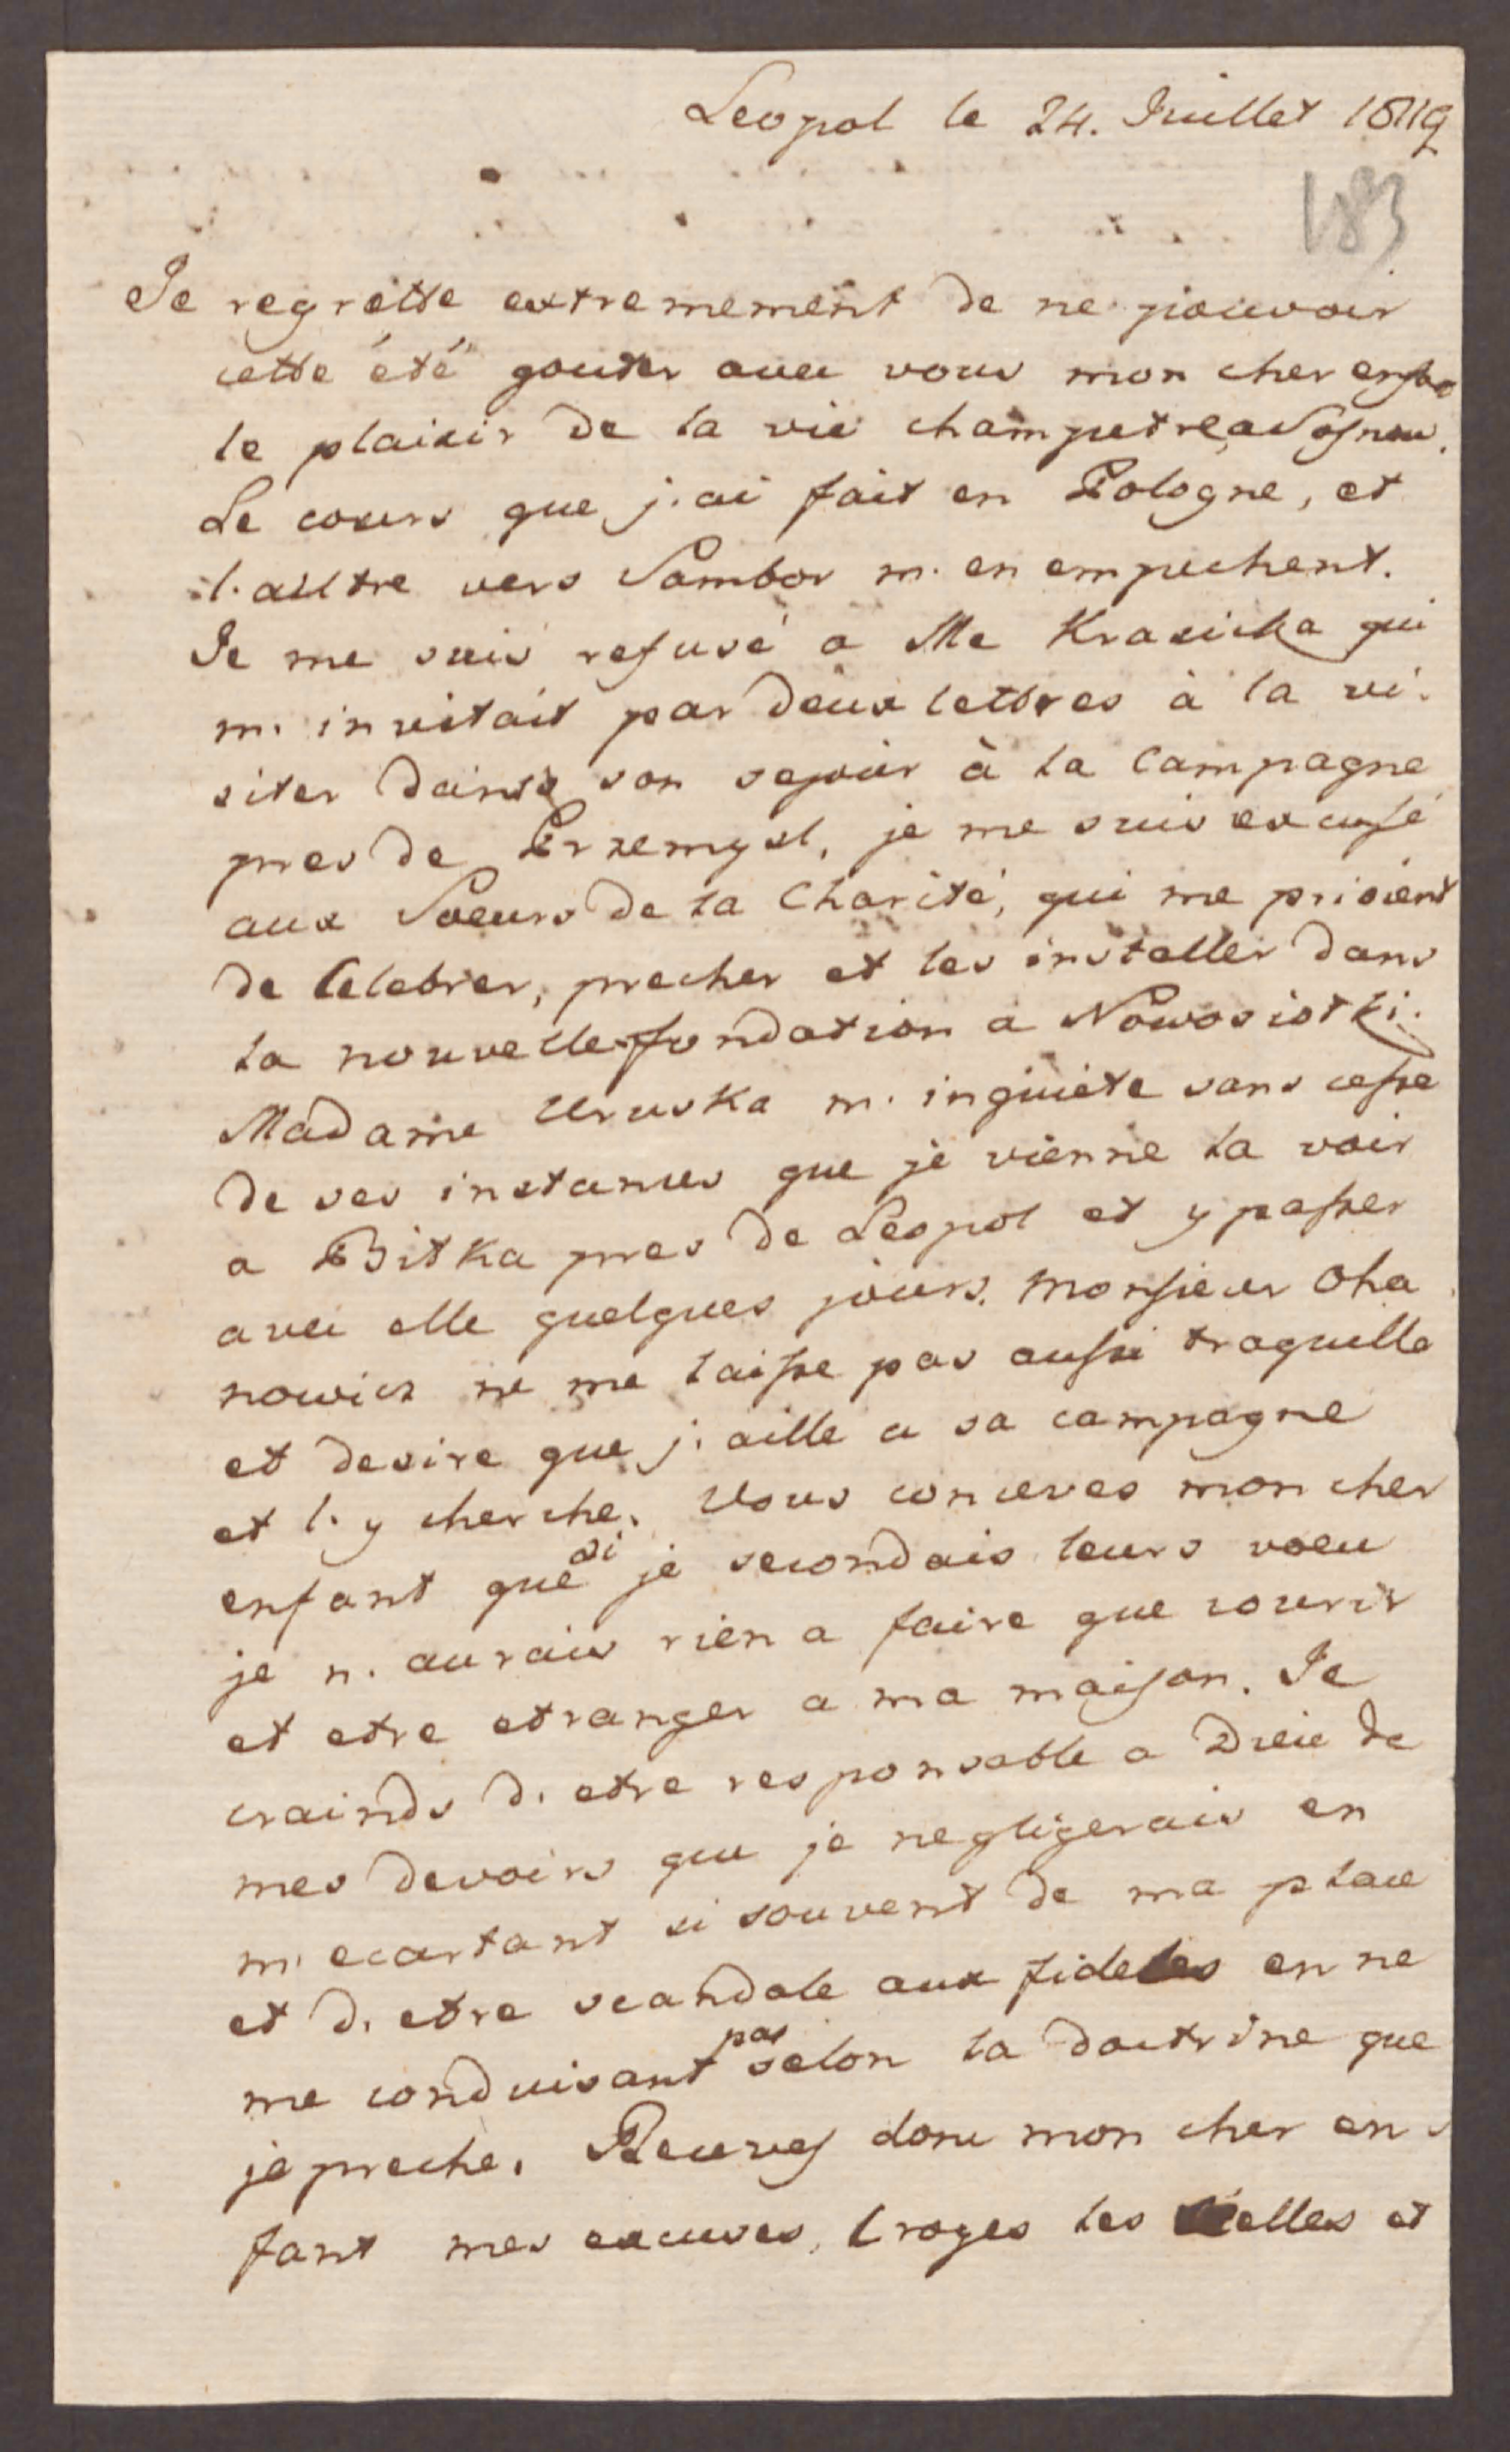 Leopol le 24. Juillet 1819
183
Je regrette extremement de ne pouvoir
cette été gouter avec vous mon cher enfan
le plaisir de la vie champetre a
Le cours que j. ai fait en Pologne, et
l. autre vers Sambor m. en empechent.
Je me suis refusé a Me Krasicka qui
m. invitait par deux lettres à la vi.
siter dans son sejour à la Campagne
pres de Przemysl, je me suis excusé
aux Soeurs de la Charité, qui me prioient
de Celebrer, precher et les installer dans
la nouvelle fondation a Nowosiolki.
Madame Uruska m. inquiete sans cesse
de ses instances que je vienne la voir
a Bilka pres de Leopol et y passer
avec elle quelques jours. Monsieur Oha
nowicz ne me laisse pas aussi traquille
et desire que j. aille a sa campagne
et l. y cherche. Vous conceves mon cher
enfant que si je secondais leurs voeu
je n. aurais rien a faire que courir
et etre etranger a ma maison. Je
crainds d. etre responsable a Dieu de
mes devoirs que je negligerais en
m. ecartant si souvent de ma place
et d. etre scandale aux fideles en ne
me conduisant pas selon la doctrine que
je preche. Receves donc mon cher en
fant mes excuses, croyes les et